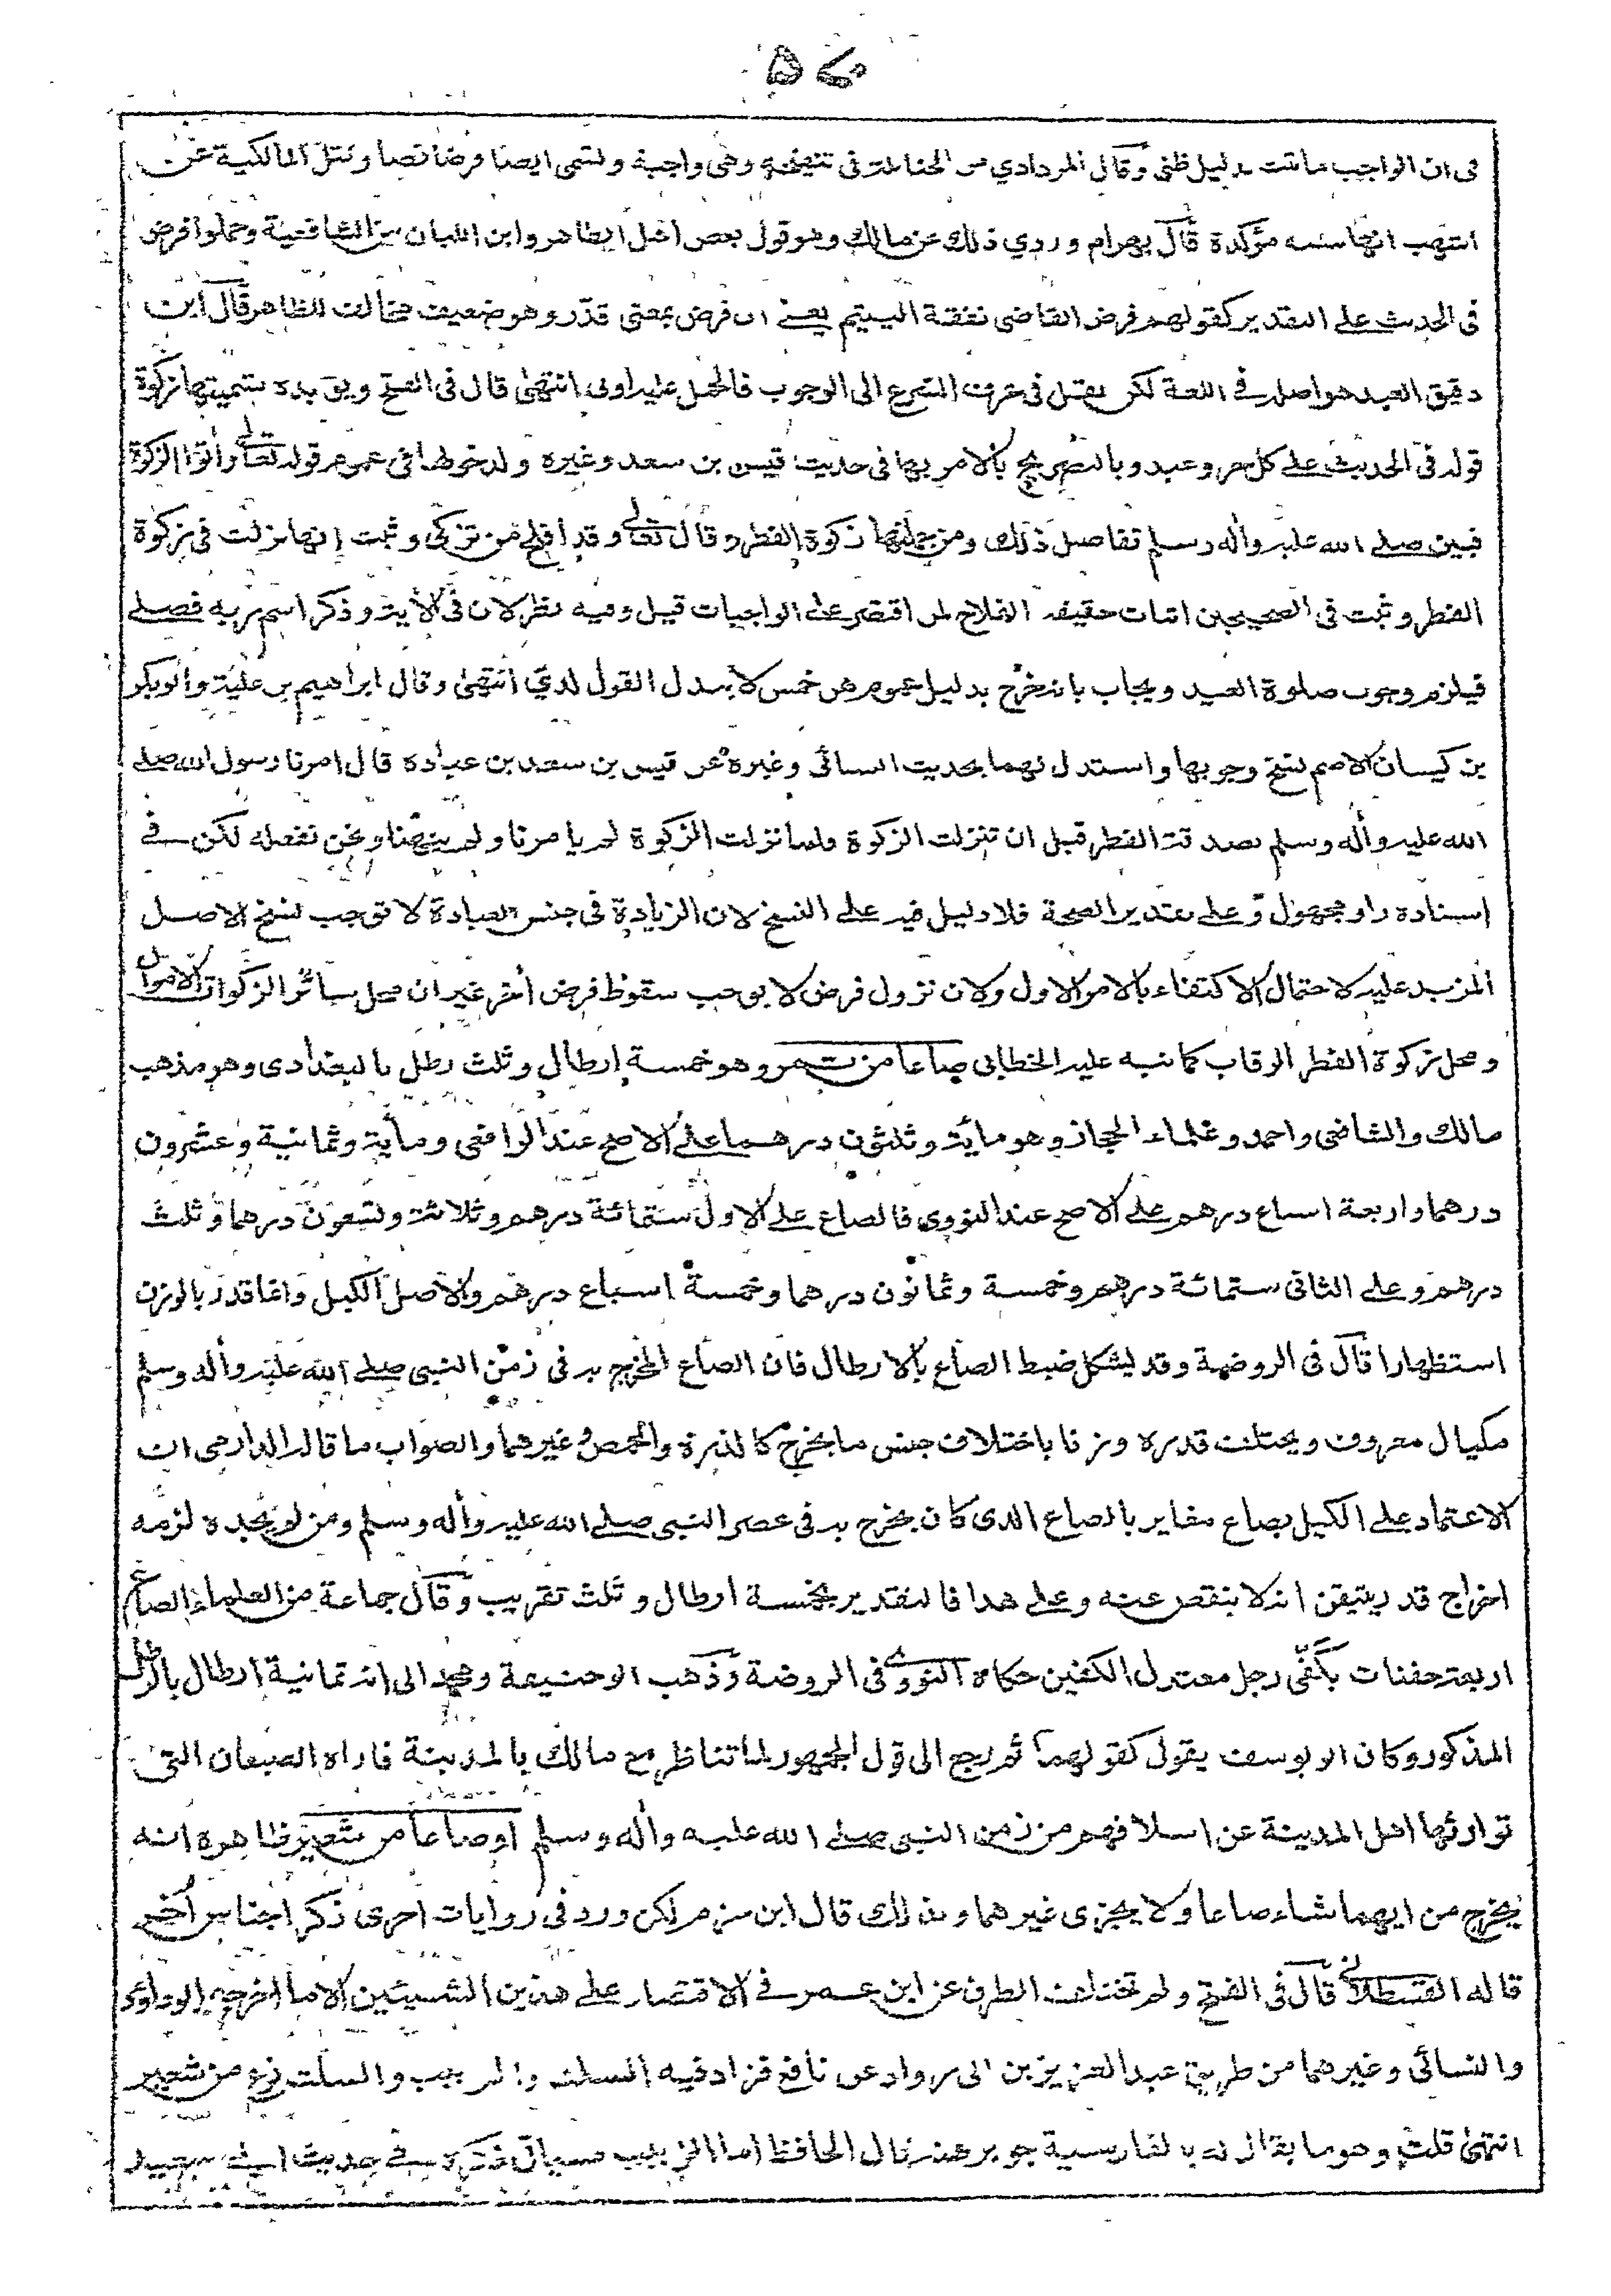 ۵۷
فى ان الواجب ما ثبت بدليل ظنى وقال المردادي من الحنابلة فى تنقيحه وهى واجبة وتسمى ايضا فرضا نصا ونقل المالكية عن
اشهب انها سنة مؤكدة قال بهرام وروي ذلك عن مالك وهو قول بعض اهل الظاهر وابن اللبان من الشافعية وحملوا فرض
فى الحديث على التقدير كقولهم فرض القاضى نفقة اليتيم يعنے ان فرض بمعنى قدّر وهو ضعيف مخالف للظاهر قال ابن
دقيق العيد هو اصله فے اللغة لكن نقل فى عرف الشرع الى الوجوب فالحمل عليه اولى انتهى قال فى الفتح ويؤيده تسميتها زكوة
قوله فى الحديث على كل حر وعبد وبالتصريح بالامر بها فى حديث قيس بن سعد وغيره ولدخولها فى عموم قوله تعالے واٰتوا الزكوة
فبين صلے الله عليه واٰله وسلم تفاصيل ذلك ومن جملتها زكوة الفطر وقال تعالے وقد افلح من تزكى وثبت انها نزلت فى زكوة
الفطر وثبت فى الصحيحين اثبات حقيقة الفلاح لمن اقتصر على الواجبات قيل وفيه نظر لان فى الاٰية وذكر اسم ربه فصلے
فيلزم وجوب صلوة العيد ويجاب بانه خرج بدليل عموم هن خمس لا يبدل القول لدي انتهى وقال ابراهيم بن علية وابوبكر
بن كيسان الاصم نسخ وجوبها واستدل لهما بحديث النسائى وغيره عن قيس بن سعد بن عبادة قال امرنا رسول الله صلے
الله عليه واٰله وسلم بصدقة الفطر قبل ان تنزلت الزكوة ولما نزلت الزكوة لم يامرنا ولم ينهنا ونحن نفعله لكن فے
اسناده راو مجهول وعلى تقدير الصحة فلا دليل فيه على النسخ لان الزيادة فى جنس العبادة لا توجب نسخ الاصل
المزيد عليه لاحتمال الاكتفاء بالامر الاول ولان نزول فرض لا يوجب سقوط فرض اٰخر غير ان محل سائر الزكوات الاموال
ومحل زكوة الفطر الرقاب كما نبه عليه الخطابى صاعا من تمر وهو خمسة ارطال وثلث رطل بالبغدادى وهو مذهب
مالك والشافعى واحمد وعلماء الحجاز وهو مائة وثلثون درهما على الاصح عند الرافعى ومأية وثمانية وعشرون
درهما واربعة اسباع درهم على الاصح عند النووى فالصاع على الاول ستمائة درهم وثلاثة وتسعون درهما وثلث
درهم وعلى الثانى ستمائة درهم وخمسة وثمانون درهما وخمسة اسباع درهم والاصل الكيل وانما قدر بالوزن
استظهارا قال فى الروضة وقد يشكل ضبط الصاع بالارطال فان الصاع المخرج به فى زمن النبى صلے الله عليه واٰله وسلم
مكيال معروف ويختلف قدره وزنا باختلاف جنس ما يخرج كالذرة والحمص وغيرهما والصواب ما قاله الدارمى ان
الاعتماد على الكيل بصاع مغاير بالصاع الذى كان يخرج به فى عصر النبى صلے الله عليه واٰله وسلم ومن لم يجده لزمه
اخراج قدر يتيقن انه لا ينقص عنه وعلى هذا فالتقدير بخمسة ارطال وثلث تقريب وقال جماعة من العلماء الصاع
اربعة حفنات بكفّى رجل معتدل الكفين حكاه النووے فى الروضة وذهب ابوحنيفة ومحمد الى انه ثمانية ارطال بالرطل
المذكور وكان ابو يوسف يقول كقولهما ثم رجع الى قول الجمهور لما تناظر مع مالك بالمدينة فاراه الصيعان التى
توارثها اهل المدينة عن اسلافهم من زمن النبى صلے الله عليه واٰله وسلم اوصاعا من شعير ظاهره انه
يخرج من ايهما شاء صاعا ولا يجزى غيرهما وبذلك قال ابن حزم لكن ورد فى روايات اخرى ذكر اجناس اُخر
قاله القسطلانے قال فى الفتح ولم تختلف الطرق عن ابن عمر فے الاقتصار على هذين الشيئين الا ما اخرجه ابوداؤد
والنسائى وغيرهما من طريق عبد العزيز بن ابى رواد عن نافع فزاد فيه السلت والزبيب والسلت نوع من شعير
انتهى قلت وهو ما يقال له بالفارسية جو برهنه قال الحافظ اما الزبيب فسياتى ذكره فے حديث ابے سعيد